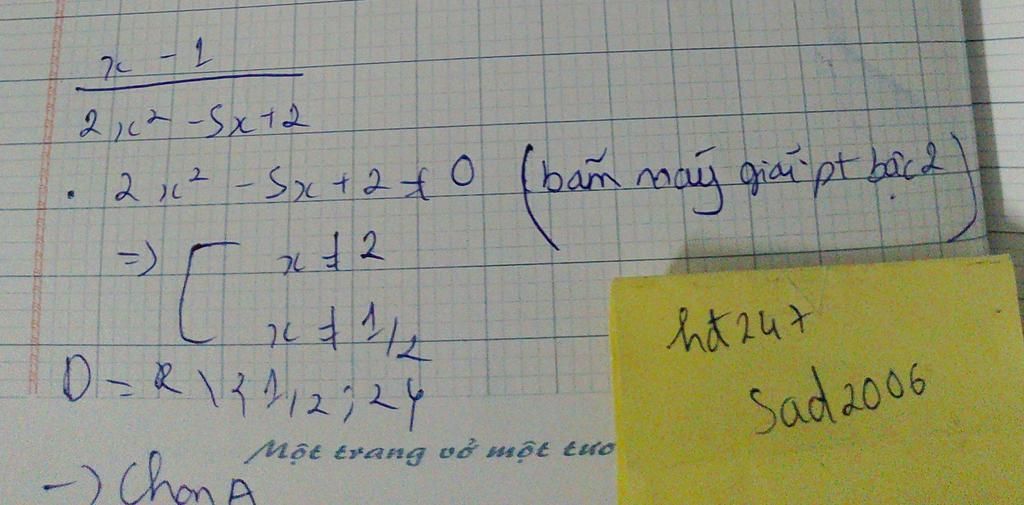 x - 1
2x² - 5x + 2
. 2x² - 5x + 2 ≠ 0 (bấm máy giải pt bậc 2)
=> [ x ≠ 2
x ≠ 1/2
D = R \ {1/2; 2}
Một trang vở một tươ
-> Chọn A
hđ247
Sad2006